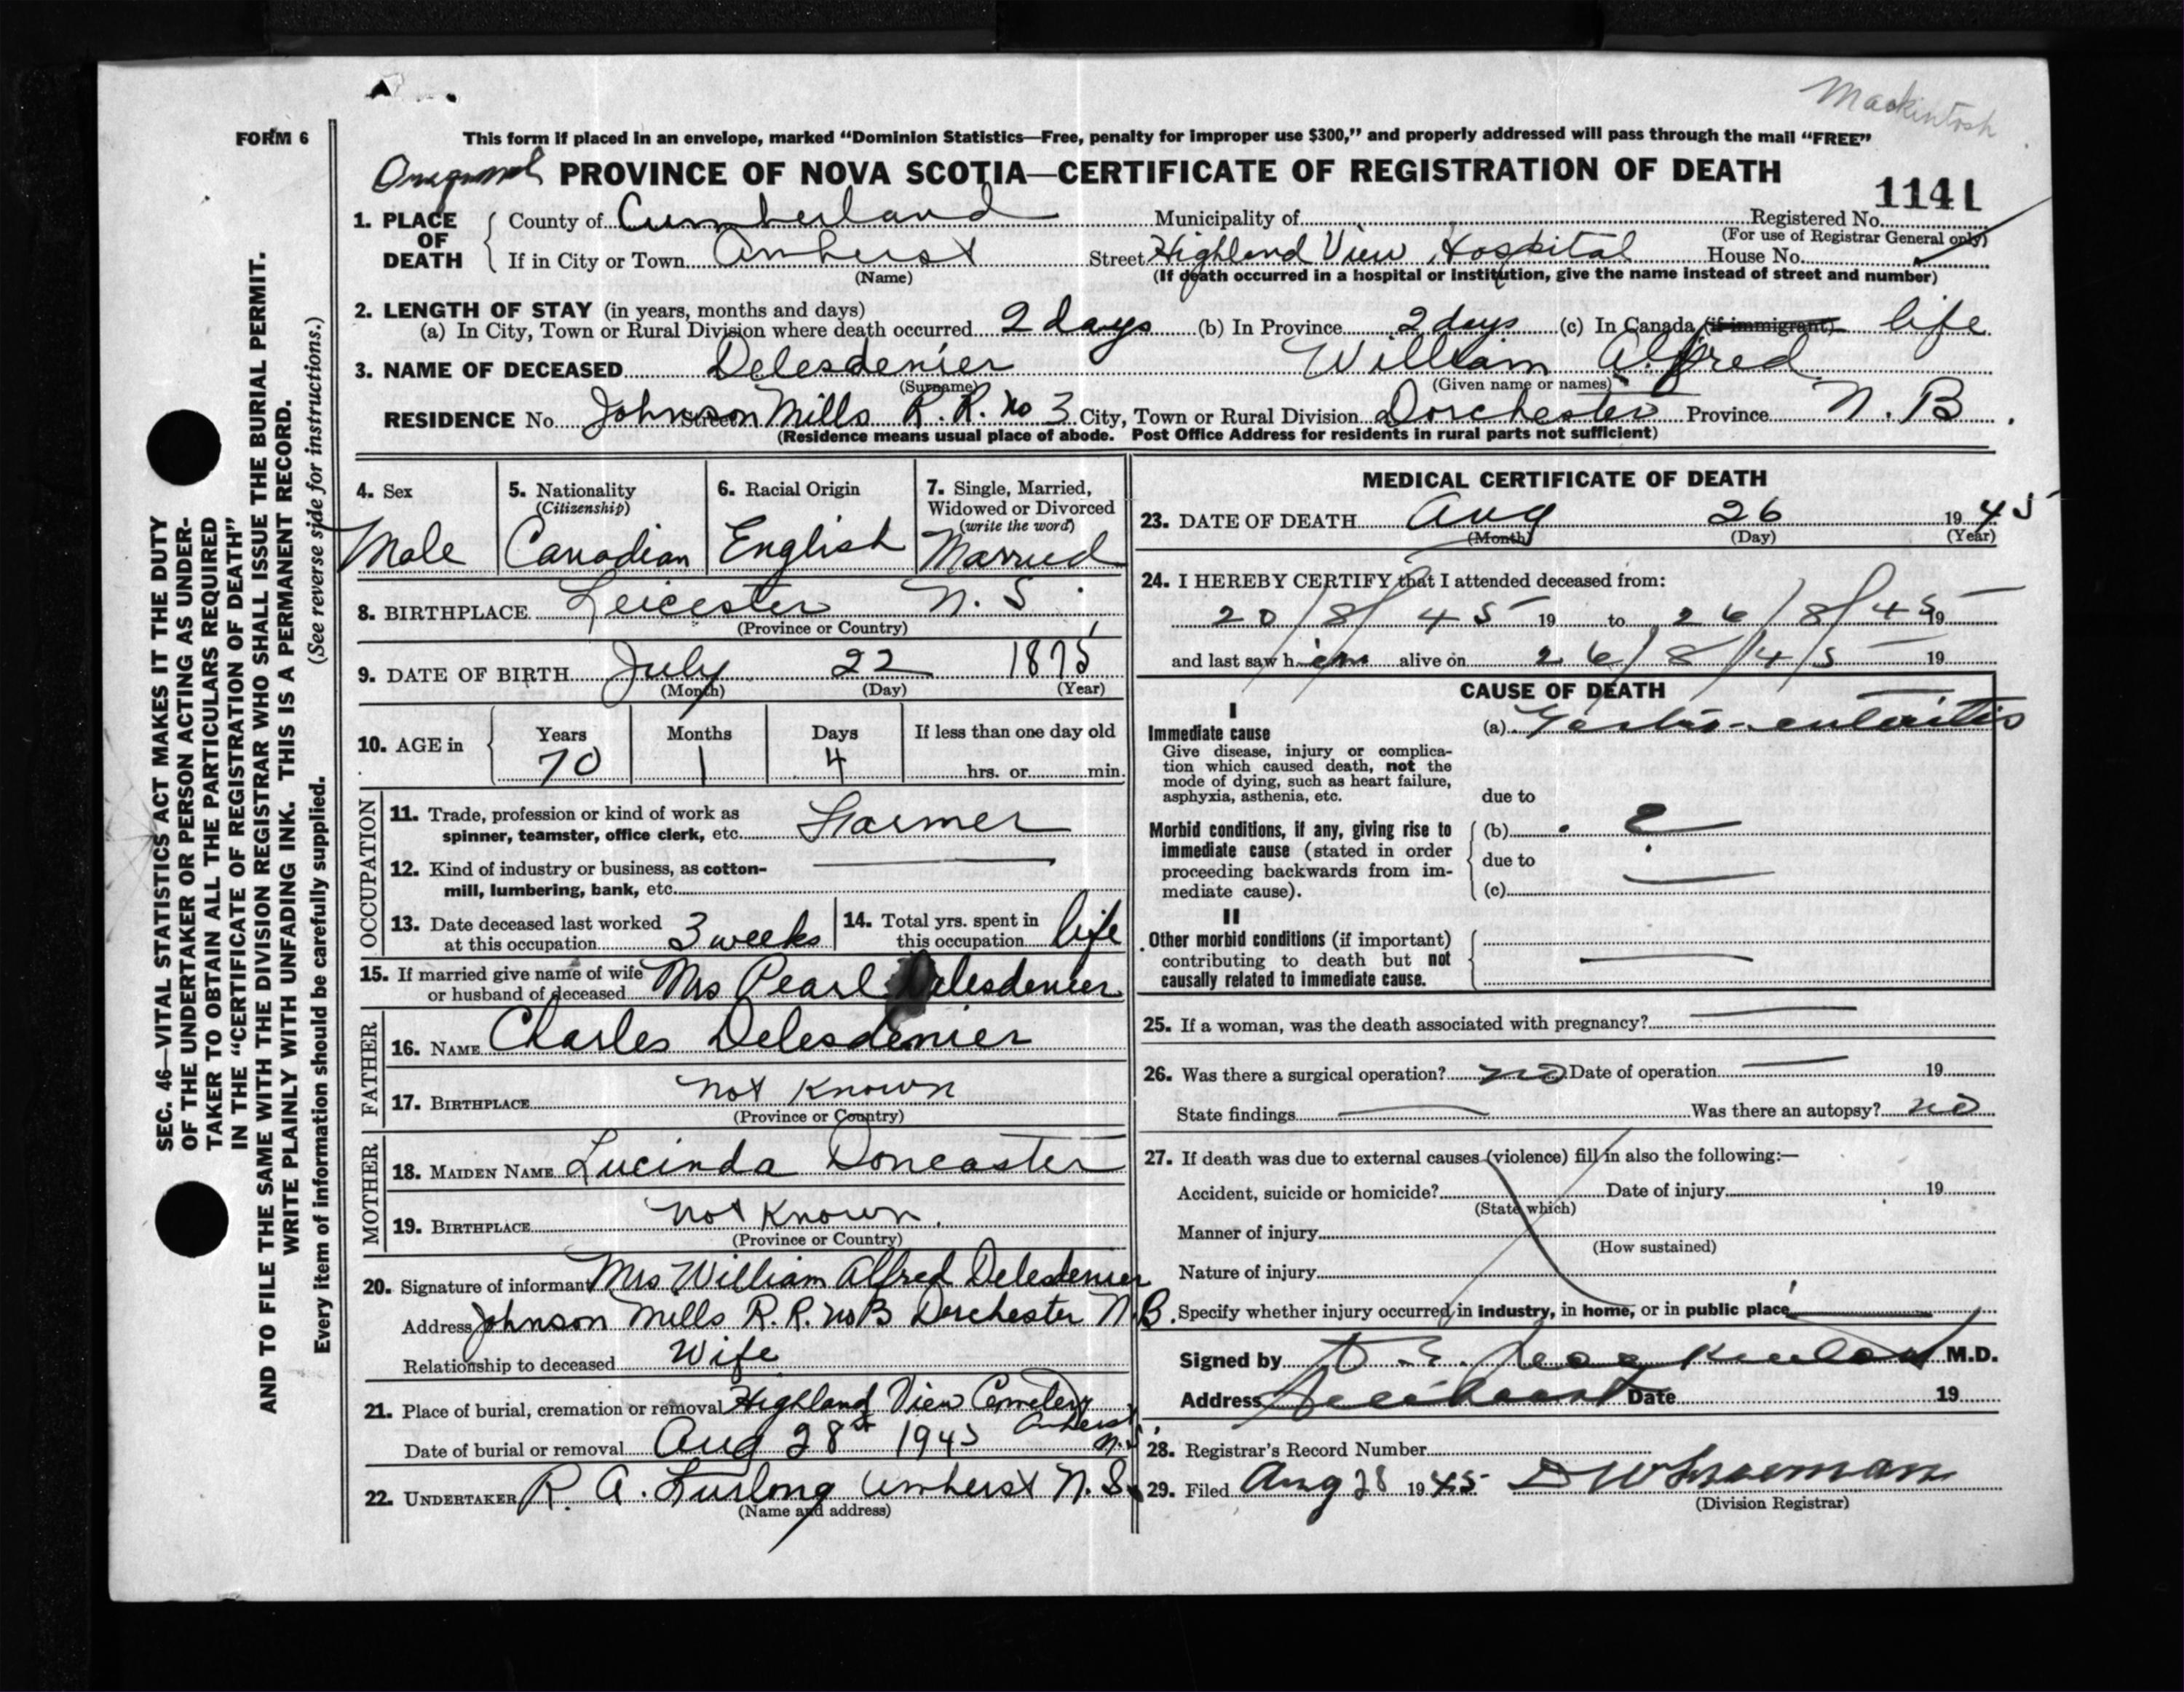 Mackintosh
FORM 6
This form if placed in an envelope, marked “Dominion Statistics—Free, penalty for improper use $300,” and properly addressed will pass through the mail “FREE”
PROVINCE OF NOVA SCOTIA—CERTIFICATE OF REGISTRATION OF DEATH
1141
1. PLACE OF DEATH County of Cumberland Municipality of Registered No.
(For use of Registrar General only)
If in City or Town Amherst Street Highland View Hospital House No.
(Name) (If death occurred in a hospital or institution, give the name instead of street and number)
2. LENGTH OF STAY (in years, months and days)
(a) In City, Town or Rural Division where death occurred 2 days (b) In Province 2 days (c) In Canada (if immigrant) life
3. NAME OF DECEASED Delesdenier William Alfred
(Surname) (Given name or names)
RESIDENCE No. Johnson Mills R. R. No 3 Street City, Town or Rural Division Dorchester Province N. B.
(Residence means usual place of abode. Post Office Address for residents in rural parts not sufficient)
4. Sex
Male
5. Nationality
(Citizenship)
Canadian
6. Racial Origin
English
7. Single, Married,
Widowed or Divorced
(write the word)
Married
8. BIRTHPLACE Leicester N. S.
(Province or Country)
9. DATE OF BIRTH July 22 1875
(Month) (Day) (Year)
10. AGE in Years Months Days If less than one day old
70 1 4 hrs. or min.
OCCUPATION
11. Trade, profession or kind of work as
spinner, teamster, office clerk, etc. Farmer
12. Kind of industry or business, as cotton-
mill, lumbering, bank, etc.
13. Date deceased last worked
at this occupation 3 weeks
14. Total yrs. spent in
this occupation life
15. If married give name of wife
or husband of deceased Mrs Pearl Delesdenier
FATHER
16. NAME Charles Delesdenier
17. BIRTHPLACE not Known
(Province or Country)
MOTHER
18. MAIDEN NAME Lucinda Doncaster
19. BIRTHPLACE not Known.
(Province or Country)
20. Signature of informant Mrs William Alfred Delesdenier
Address Johnson Mills R. R. No 3 Dorchester N. B.
Relationship to deceased Wife
21. Place of burial, cremation or removal Highland View Cemetery
Amherst N. S.
Date of burial or removal Aug 28 1945
22. UNDERTAKER R. A. Furlong Amherst N. S.
(Name and address)
MEDICAL CERTIFICATE OF DEATH
23. DATE OF DEATH Aug 26 1945
(Month) (Day) (Year)
24. I HEREBY CERTIFY that I attended deceased from:
20/8/45 19 to 26/8/45 19
and last saw him alive on 26/8/45 19
CAUSE OF DEATH
I
Immediate cause
Give disease, injury or complica-
tion which caused death, not the
mode of dying, such as heart failure,
asphyxia, asthenia, etc.
(a) Gastro-enteritis
due to
Morbid conditions, if any, giving rise to
immediate cause (stated in order
proceeding backwards from im-
mediate cause).
(b)
due to
(c)
II
Other morbid conditions (if important)
contributing to death but not
causally related to immediate cause.
25. If a woman, was the death associated with pregnancy?
26. Was there a surgical operation? no Date of operation 19
State findings Was there an autopsy? no
27. If death was due to external causes (violence) fill in also the following:—
Accident, suicide or homicide? Date of injury 19
(State which)
Manner of injury
(How sustained)
Nature of injury
Specify whether injury occurred in industry, in home, or in public place
Signed by M.D.
Address Date 19
28. Registrar's Record Number
29. Filed Aug 28 1945
(Division Registrar)
SEC. 46—VITAL STATISTICS ACT MAKES IT THE DUTY
OF THE UNDERTAKER OR PERSON ACTING AS UNDER-
TAKER TO OBTAIN ALL THE PARTICULARS REQUIRED
IN THE “CERTIFICATE OF REGISTRATION OF DEATH”
AND TO FILE THE SAME WITH THE DIVISION REGISTRAR WHO SHALL ISSUE THE BURIAL PERMIT.
WRITE PLAINLY WITH UNFADING INK. THIS IS A PERMANENT RECORD.
Every item of information should be carefully supplied. (See reverse side for instructions.)